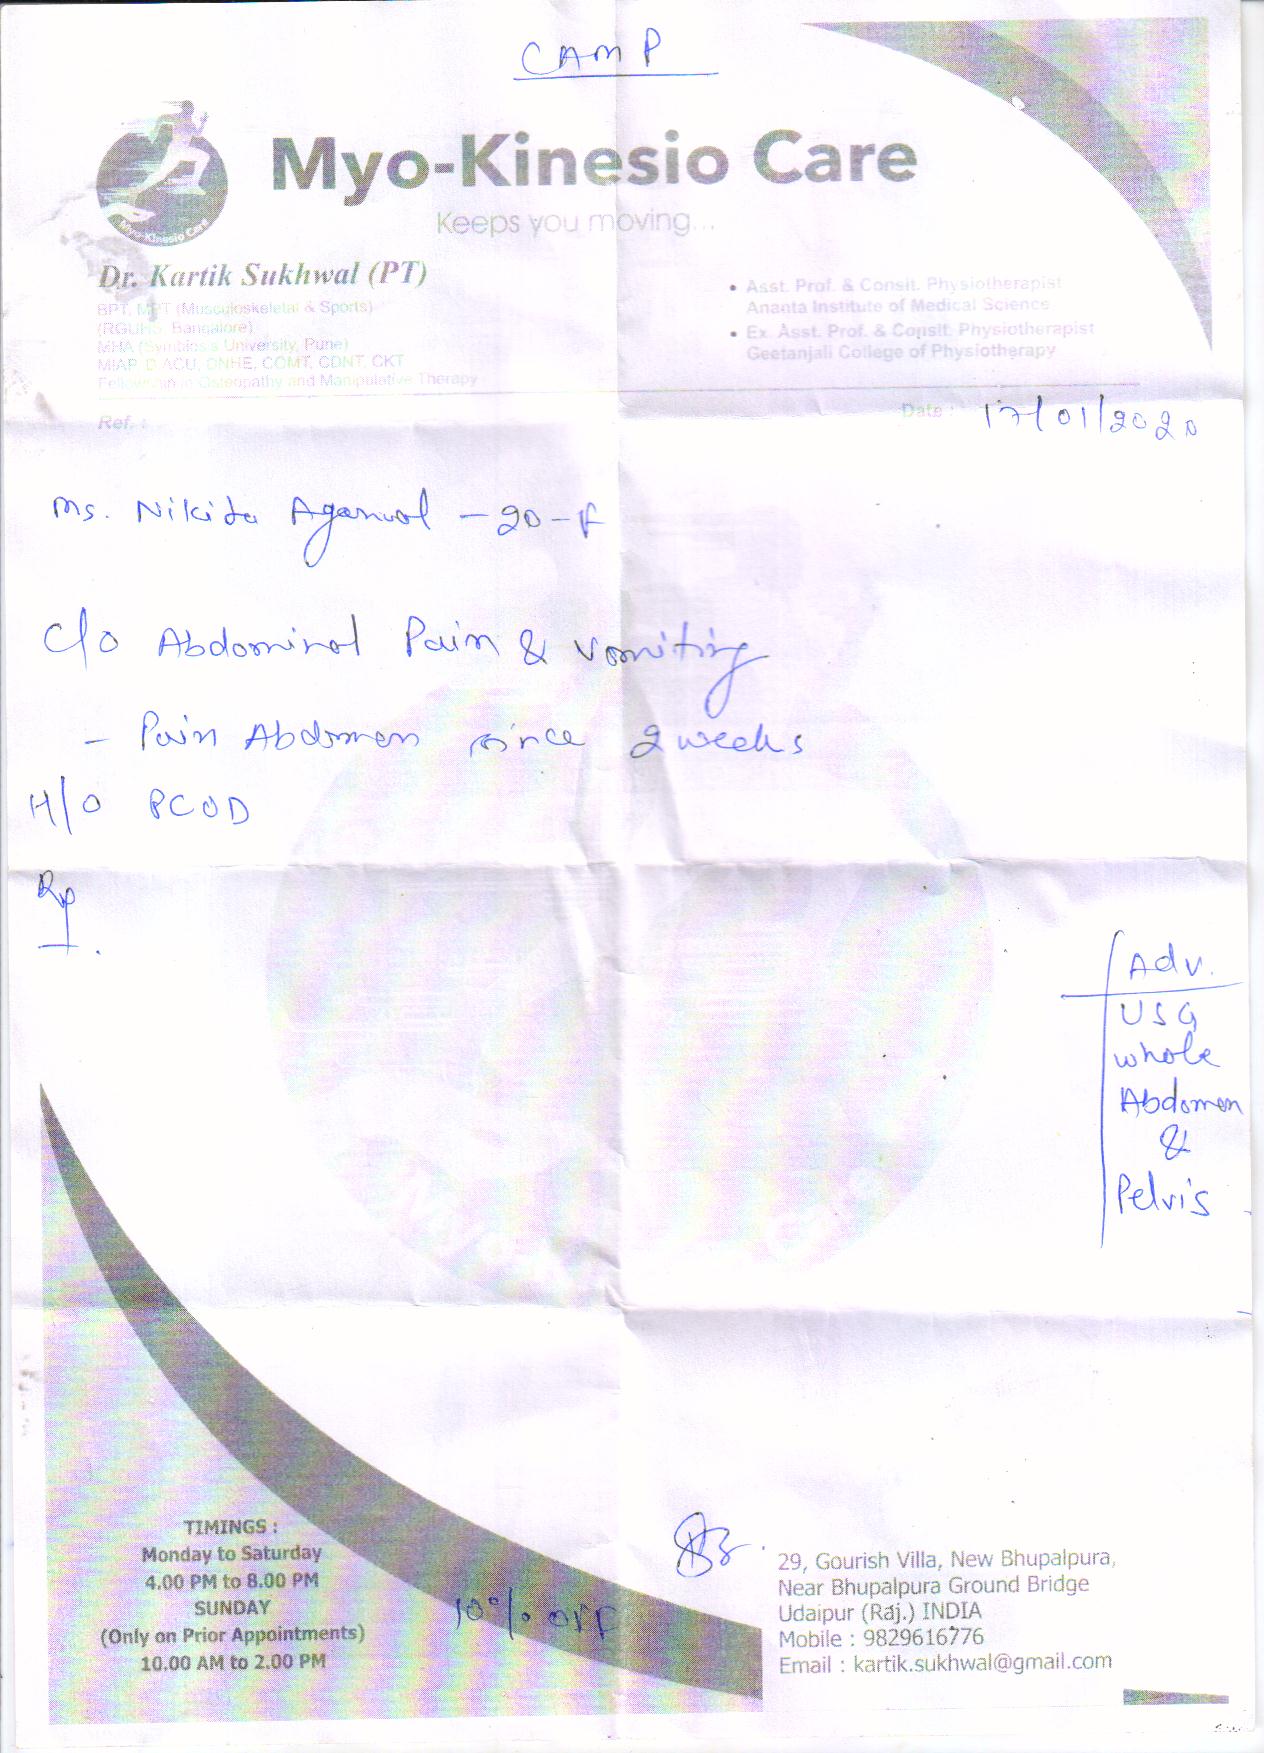 CAMP
Myo-Kinesio Care
Keeps you moving...
Myo-Kinesio Care
Dr. Kartik Sukhwal (PT)
BPT, MPT (Musculoskeletal & Sports)
(RGUHS, Bangalore)
MHA (Symbiosis University, Pune)
MIAP, D.ACU, DNHE, COMT, CDNT, CKT
Fellowship in Osteopathy and Manipulative Therapy
• Asst. Prof. & Conslt. Physiotherapist
Ananta Institute of Medical Science
• Ex. Asst. Prof. & Conslt. Physiotherapist
Geetanjali College of Physiotherapy
Ref. :
Date : 17/01/2020
Ms. Nikita Agarwal - 20 - F
C/o Abdominal Pain & Vomiting
- Pain Abdomen since 2 weeks
H/O PCOD
Rp
Adv.
USG
whole
Abdomen
&
Pelvis
TIMINGS :
Monday to Saturday
4.00 PM to 8.00 PM
SUNDAY
(Only on Prior Appointments)
10.00 AM to 2.00 PM
10% OFF
29, Gourish Villa, New Bhupalpura,
Near Bhupalpura Ground Bridge
Udaipur (Raj.) INDIA
Mobile : 9829616776
Email : kartik.sukhwal@gmail.com